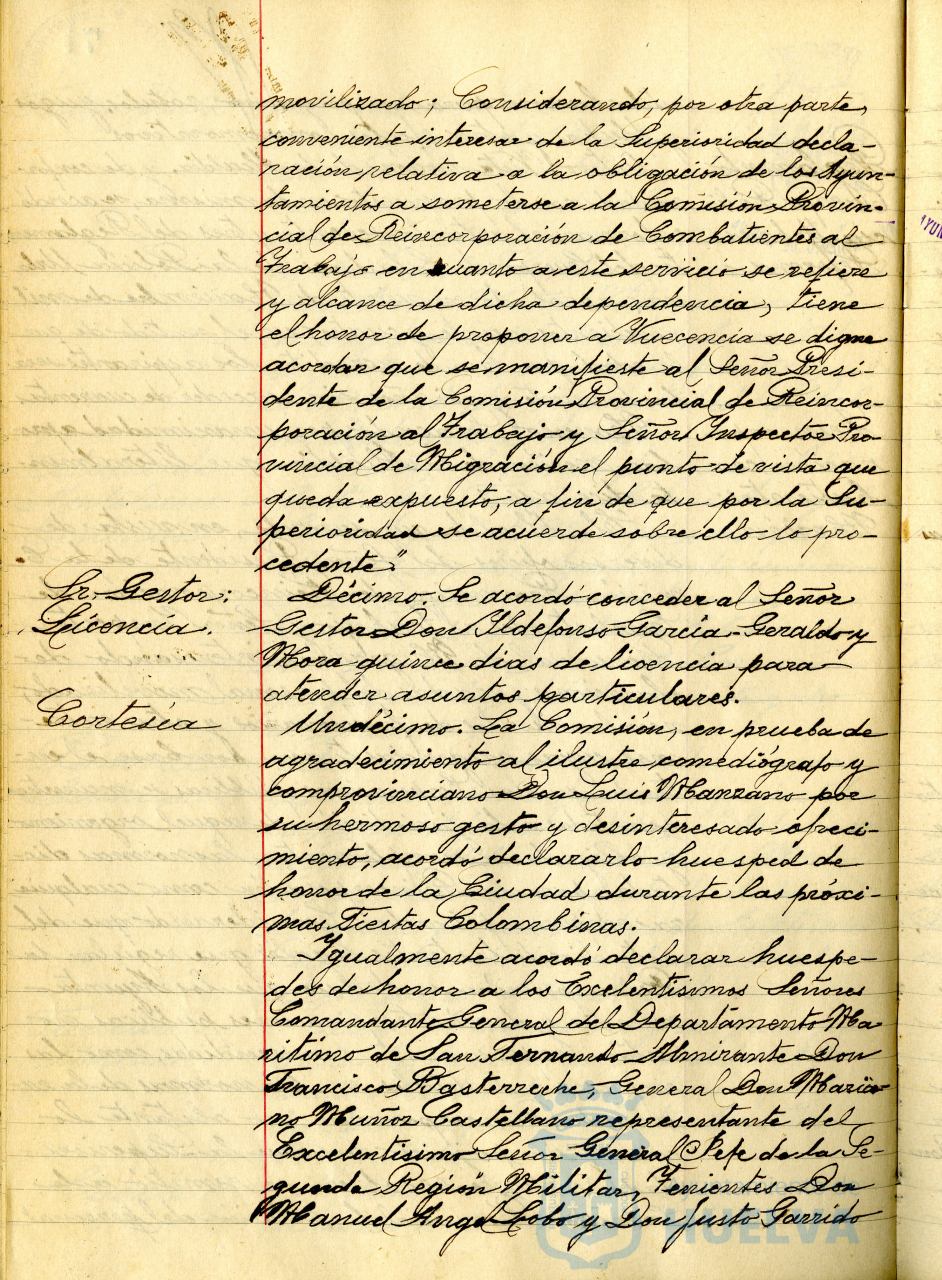 movilizado; Considerando, por otra parte,
conveniente interesar de la Superioridad decla-
ración relativa a la obligación de los Ayun-
tamientos a someterse a la Comisión Provin-
cial de Reincorporación de Combatientes al
Trabajo en cuanto a este servicio se refiere
y alcance de dicha dependencia, tiene
el honor de proponer a Vuecencia se digne
acordar que se manifieste al Señor Presi-
dente de la Comisión Provincial de Reincor-
poración al Trabajo y Señor Inspector Pro-
vincial de Migración el punto de vista que
queda expuesto, a fin de que por la Su-
perioridad se acuerde sobre ello lo pro-
cedente".
Sr. Gestor:
Licencia.
Décimo. Se acordó conceder al Señor
Gestor Don Ildefonso García-Geraldo y
Mora quince dias de licencia para
atender asuntos particulares.
Cortesía
Undécimo. La Comisión, en prueba de
agradecimiento al ilustre comediógrafo y
comprovinciano Don Luis Manzano por
su hermoso gesto y desinteresado ofreci-
miento, acordó declararlo huesped de
honor de la Ciudad durante las próxi-
mas Fiestas Colombinas.
Igualmente acordó declarar huespe-
des de honor a los Excelentisimos Señores
Comandante General del Departamento Ma
ritimo de San Fernando Almirante Don
Francisco Basterreche, General Don Maria-
no Muñoz Castellano representante del
Excelentisimo Señor General Jefe de la Se-
gunda Región Militar, Tenientes Don
Manuel Angel Lobo y Don Justo Garrido
HUELVA